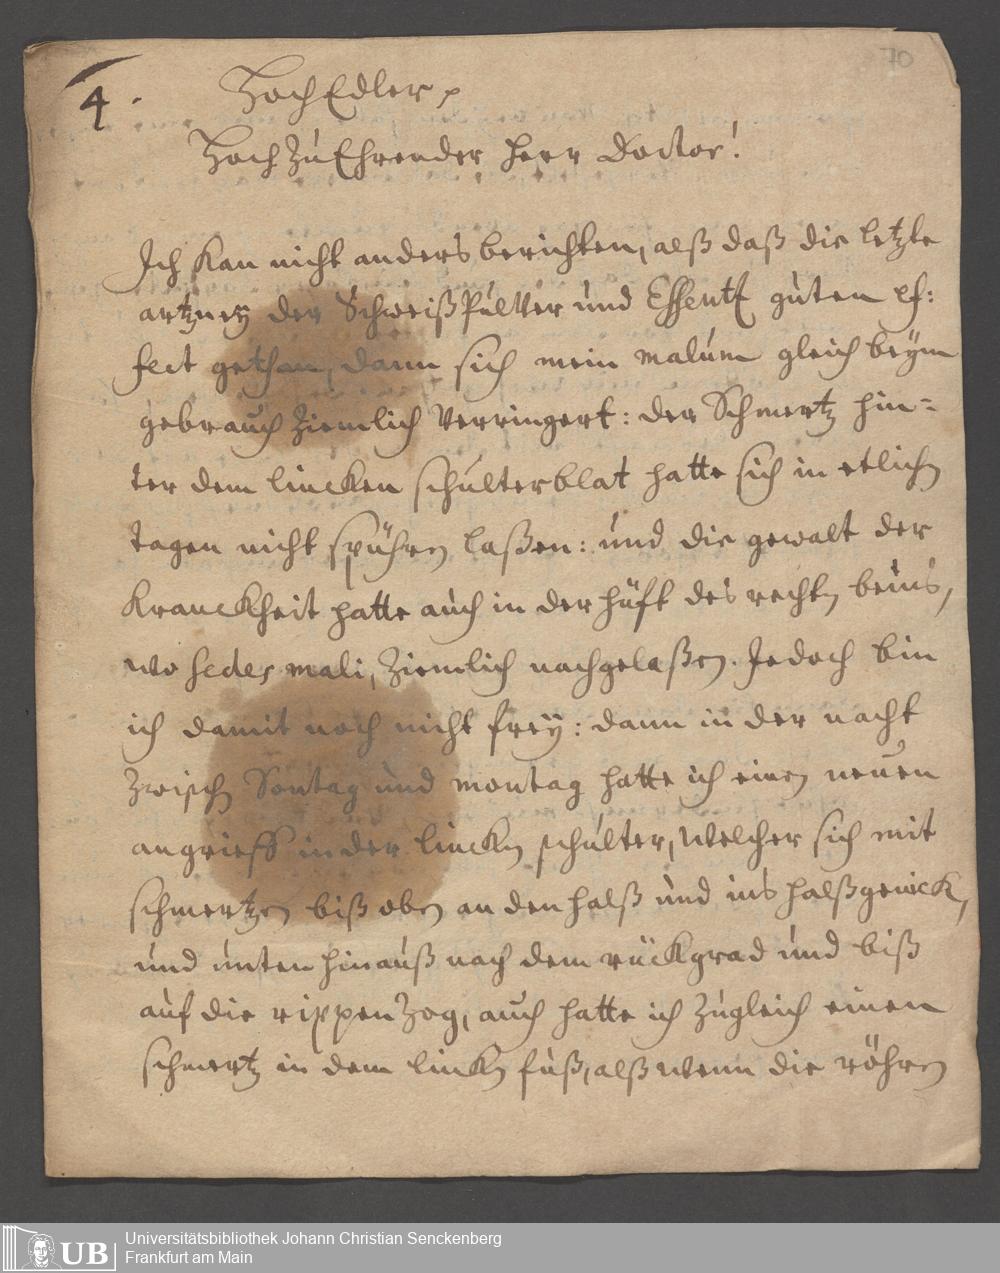 70
4.
HochEdler p
HochZuEhrender Herr Doctor!
Ich kan nicht anders berichten, alß daß die letzte
artzney der SchweißPulver und Essentz guten ef:
fect gethan, dann sich mein malum gleich beym
gebrauch Ziemlich Verringert: der Schmertz hin=
ter dem lincken schulterblat hatte sich in etlichen
tagen nicht spühren laßen: und die gewalt der
Kranckheit hatte auch in der hüfft des rechten beins,
wo sedes mali, Ziemlich nachgelaßen. Jedoch bin
ich damit noch nicht frey: dann in der nacht
Zwischen Sontag und montag hatte ich einen neuen
angrieff in der lincken schulter, welcher sich mit
schmertzen biß oben an den halß und ins halßgenick,
und unten hinauß nach dem rückgrad und biß
auf die rippen Zog, auch hatte ich zugleich einen
schmertz in dem lincken fuß, alß wenn die röhren
UB
Universitätsbibliothek Johann Christian Senckenberg
Frankfurt am Main